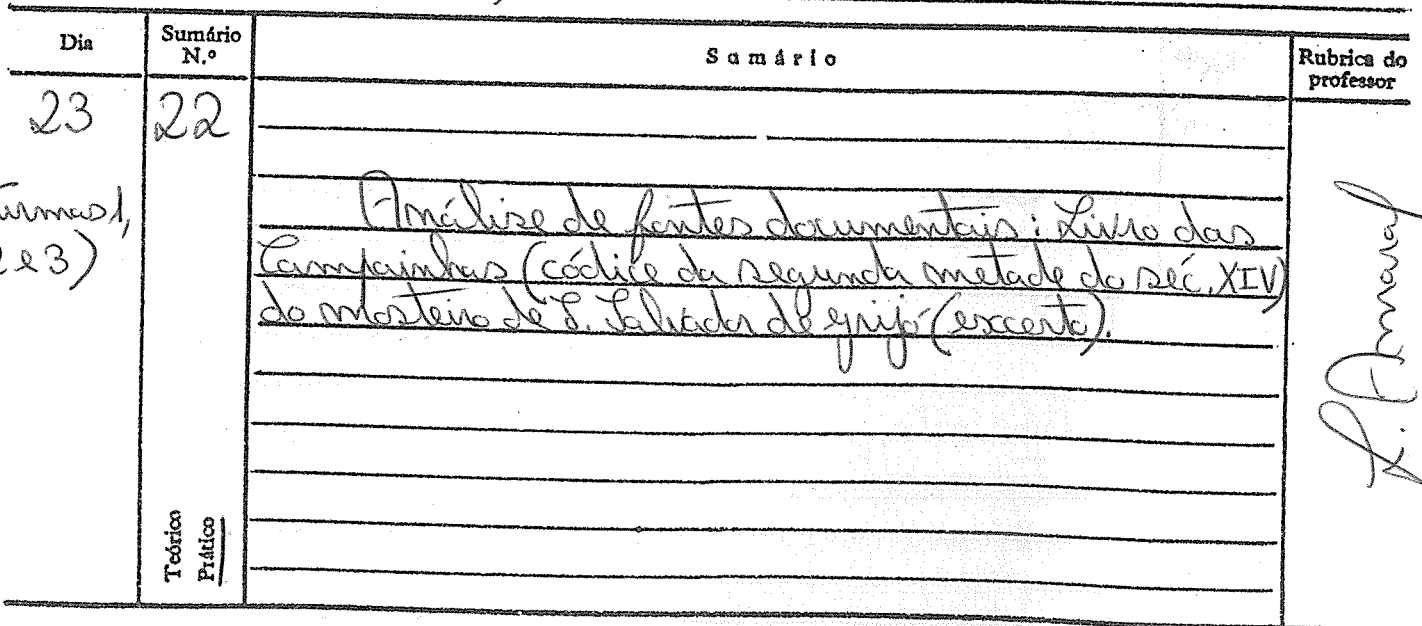 Dia
Sumário
N.º
Sumário
Rubrica do
professor
23
22
Turmas 1,
2 e 3)
Análise de fontes documentais: Livro das
Campainhas (códice da segunda metade do séc. XIV)
do mosteiro de S. Salvador de grijó (excerto).
L. Amaral
Teórico
Prático